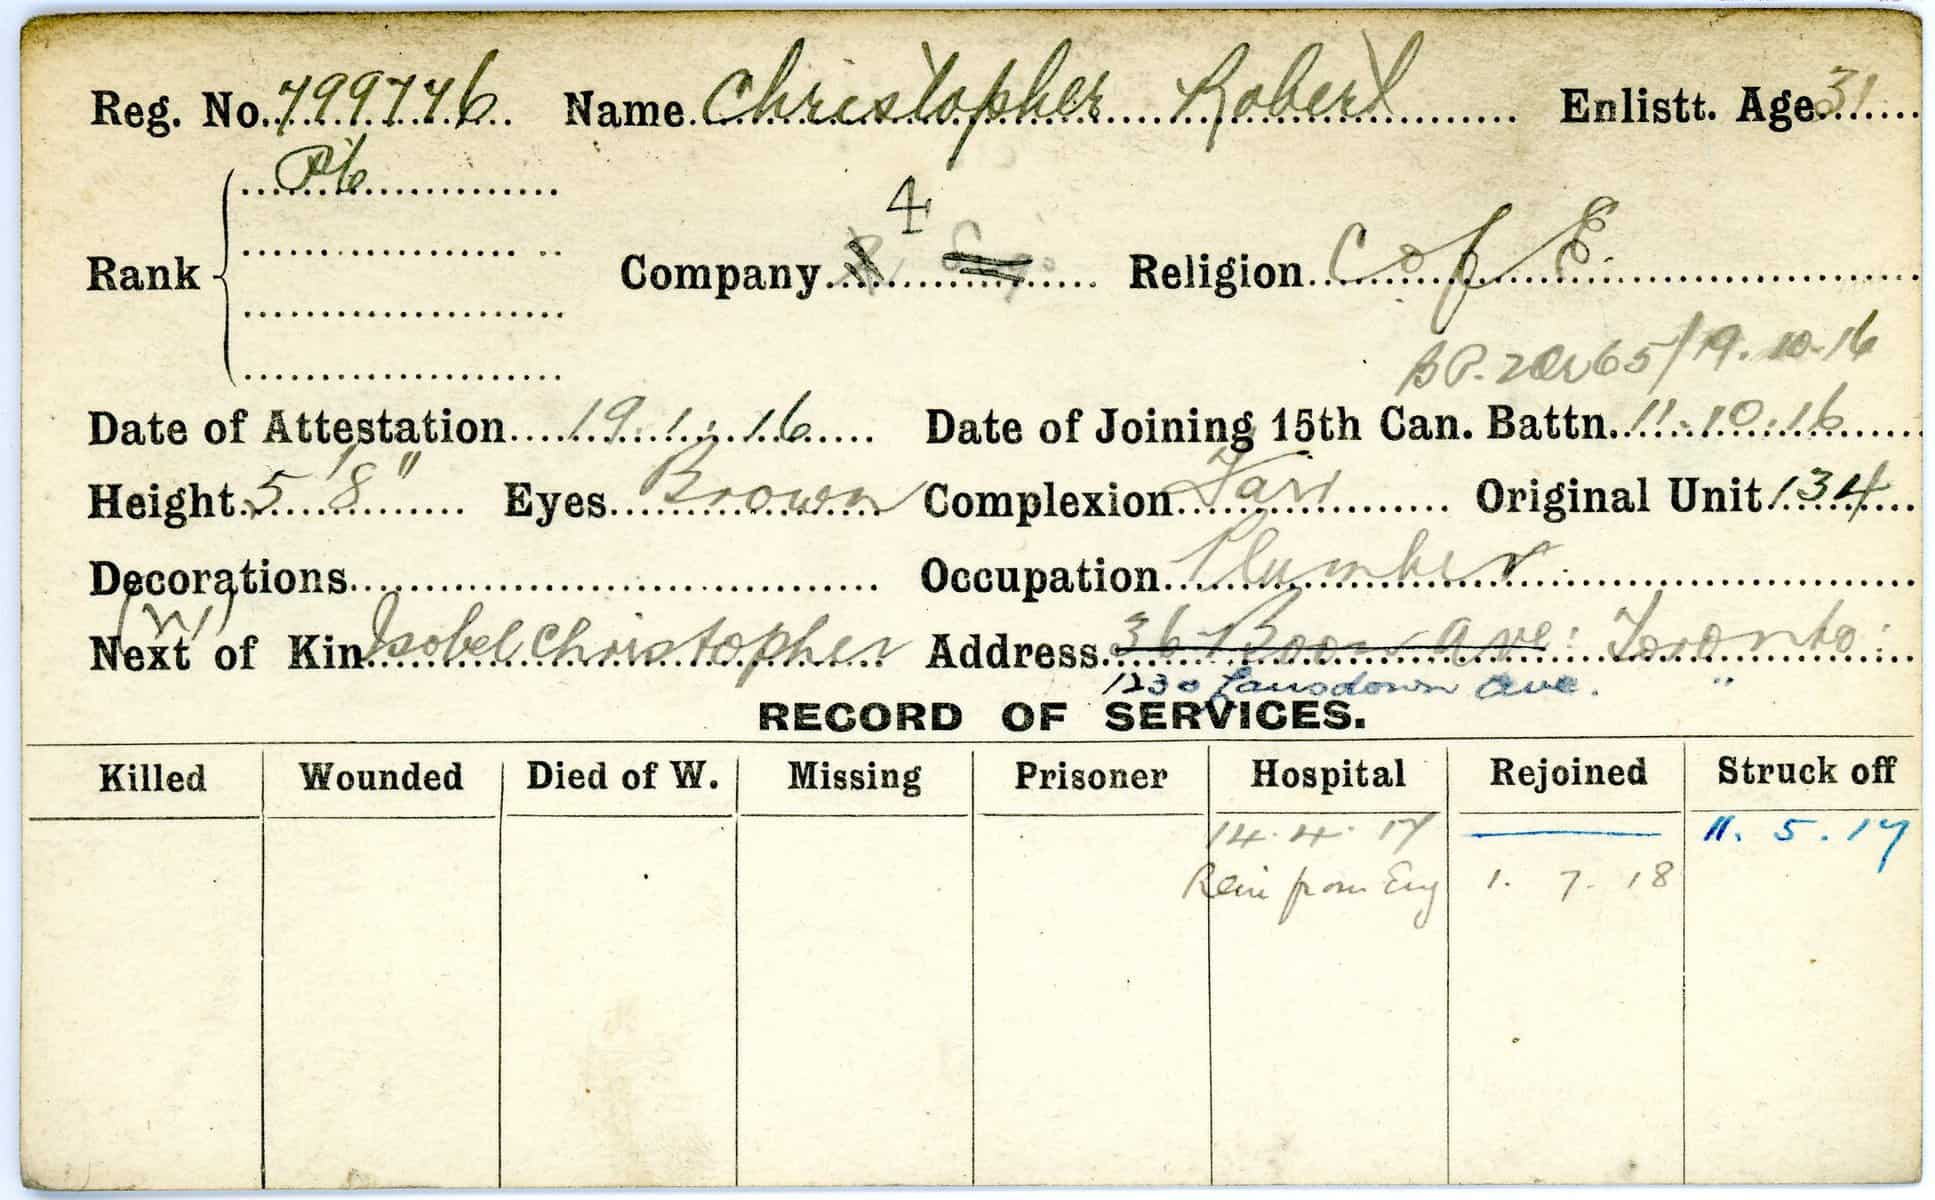 Reg. No. 799746 Name Christopher Robert Enlistt. Age 31
Pte
4
Rank Company Religion C of E.
19.10.16
Date of Attestation 19.1.16 Date of Joining 15th Can. Battn. 11.10.16
Height 5'8" Eyes Brown Complexion Fair Original Unit 134
Decorations Occupation Plumber
(W)
Next of Kin Isobel Christopher Address 36 Boon Ave: Toronto:
1230 Lansdown Ave. "
RECORD OF SERVICES.
Killed Wounded Died of W. Missing Prisoner Hospital Rejoined Struck off
14.4.17 11.5.17
Rein from Eng 1.7.18